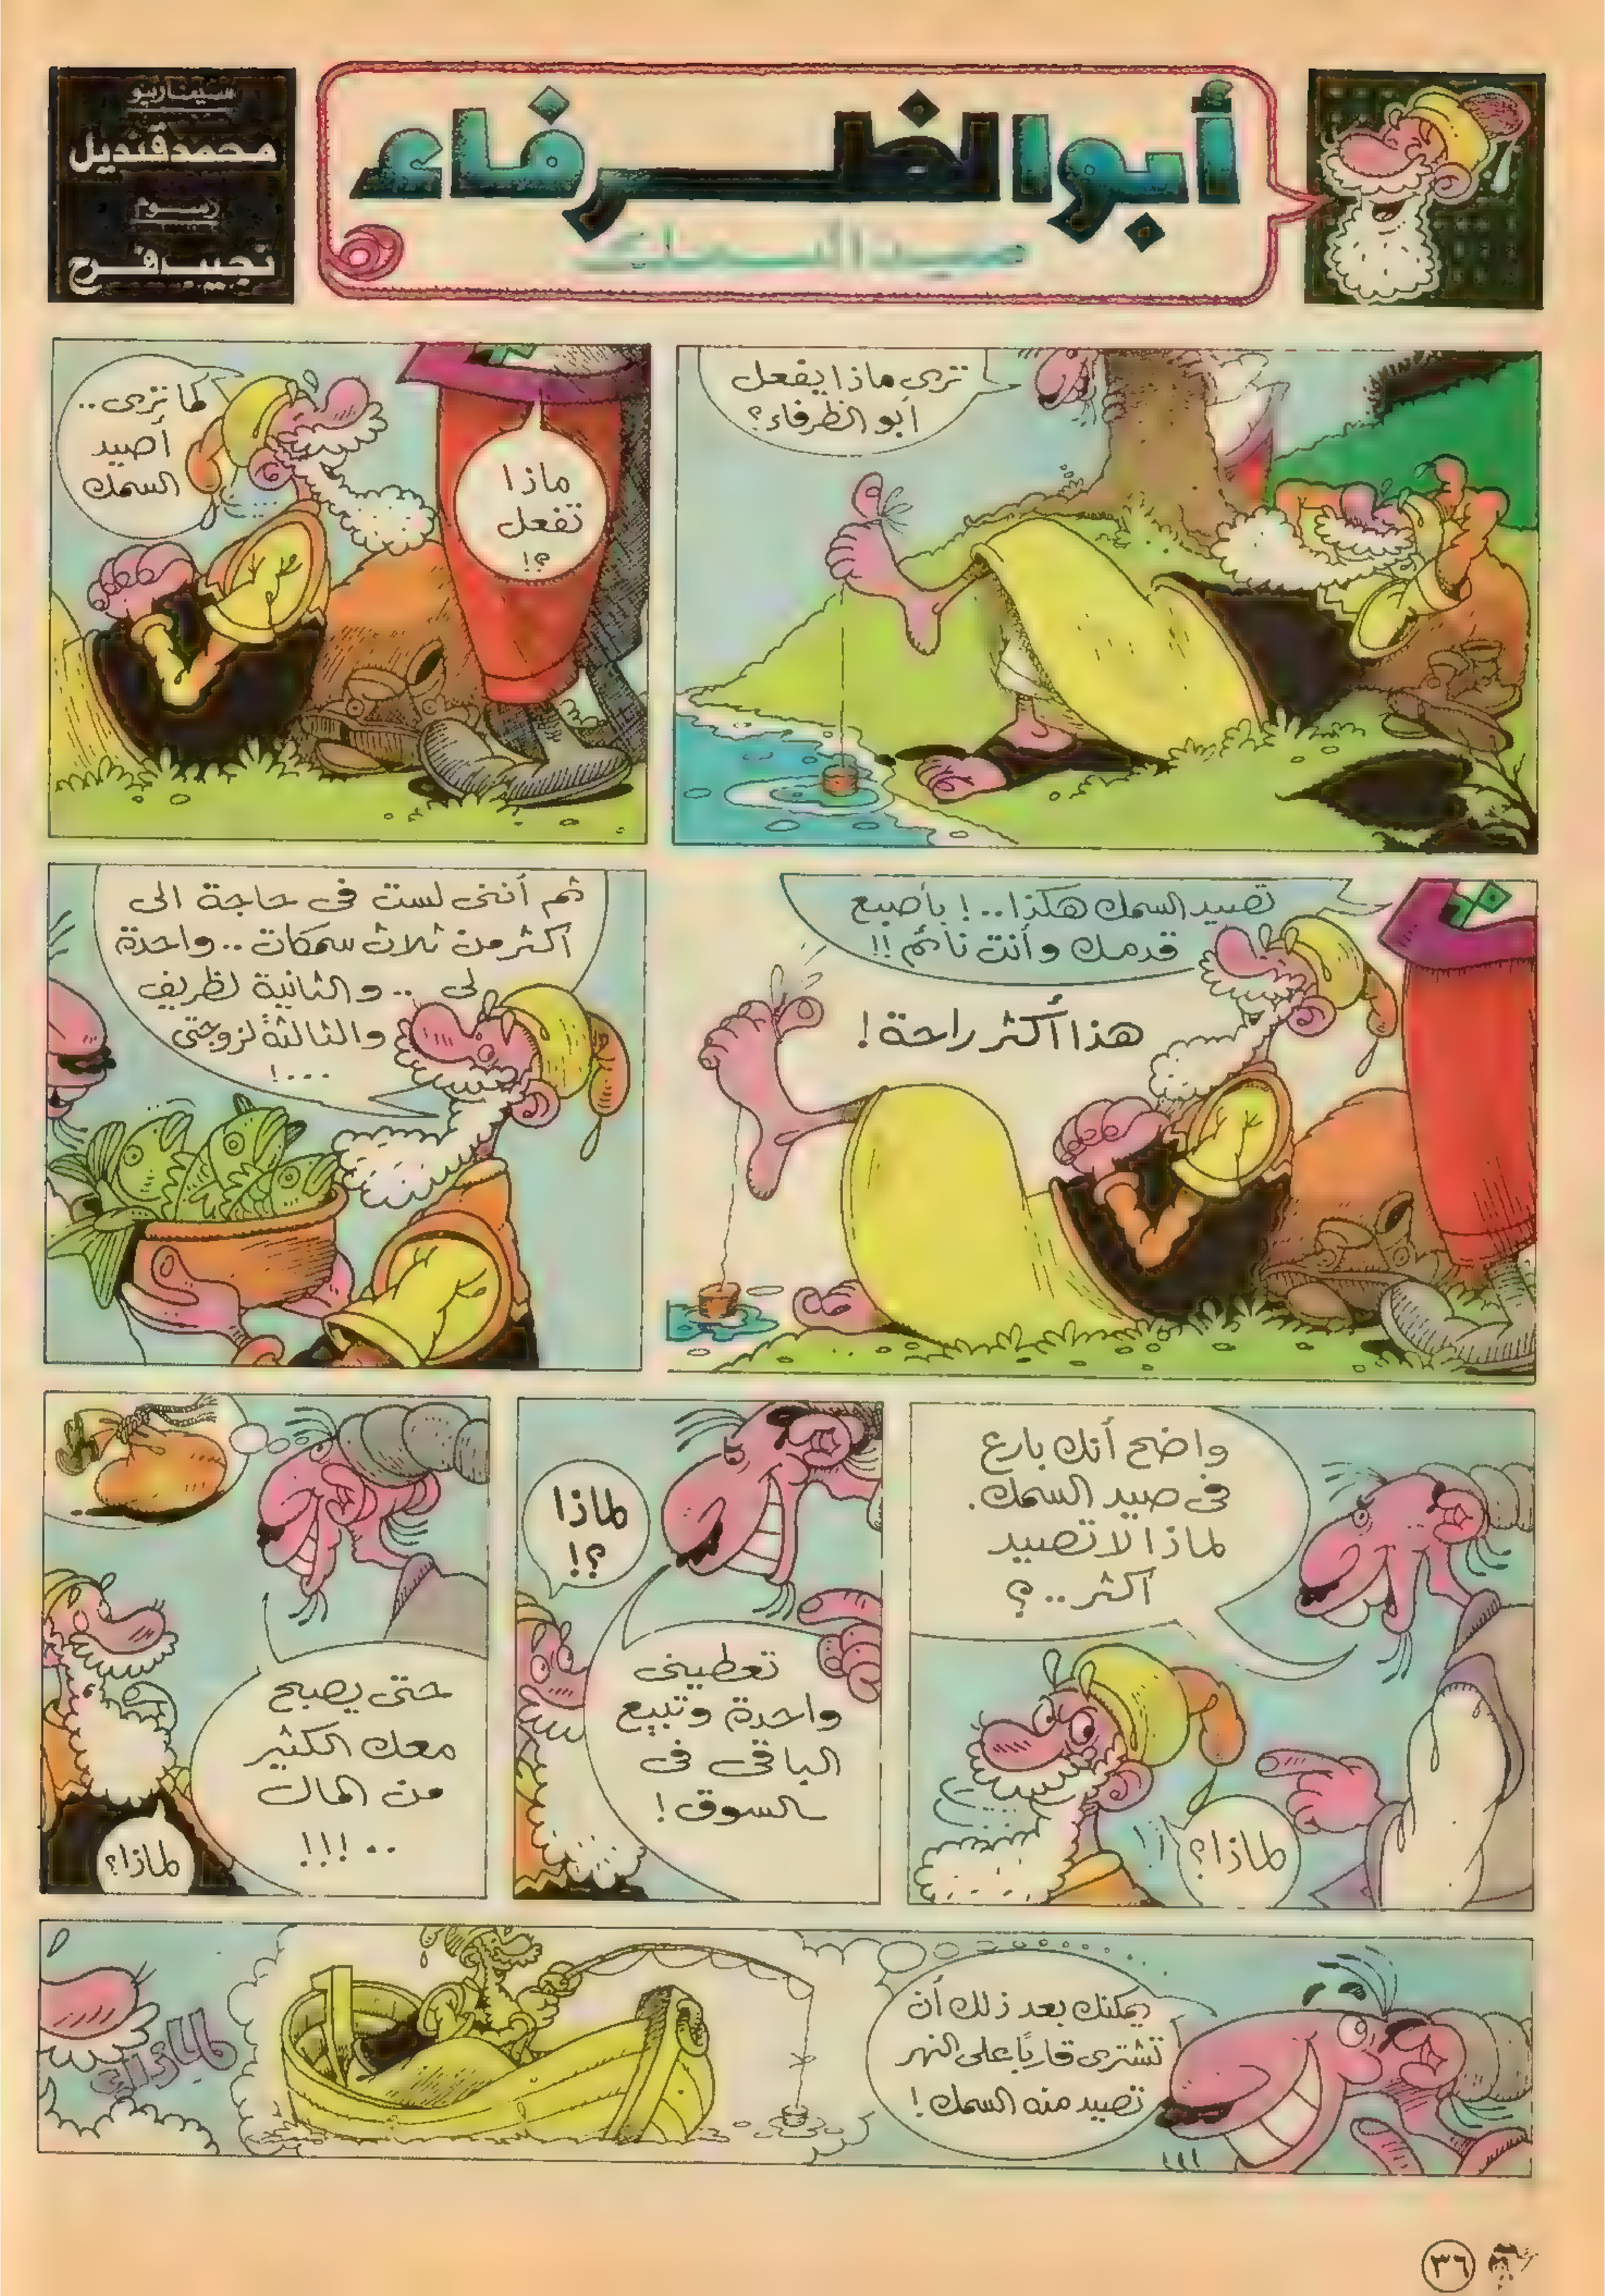 أبو الظرفاء
صيد السمك
سيناريو
محمد قنديل
رسوم
نجيب فرح
ترى ماذا يفعل
أبو الظرفاء؟
ماذا
تفعل
؟!
كما ترى..
أصيد
السمك
تصيد السمك هكذا..! بأصبع
قدمك وأنت نائم!!
هذا أكثر راحة!
ثم أننى لست فى حاجة الى
أكثر من ثلاث سمكات.. واحدة
لى.. والثانية لظريف
والثالثة لزوجتى
...!
واضح أنك بارع
فى صيد السمك.
لماذا لا تصيد
أكثر..؟
لماذا؟!
لماذا
؟!
تعطينى
واحدة وتبيع
الباقى فى
السوق!
حتى يصبح
معك الكثير
من المال
..!!!
لماذا؟
يمكنك بعد ذلك أن
تشترى قاربًا على النهر
تصيد منه السمك!
لماذا؟
٣٦